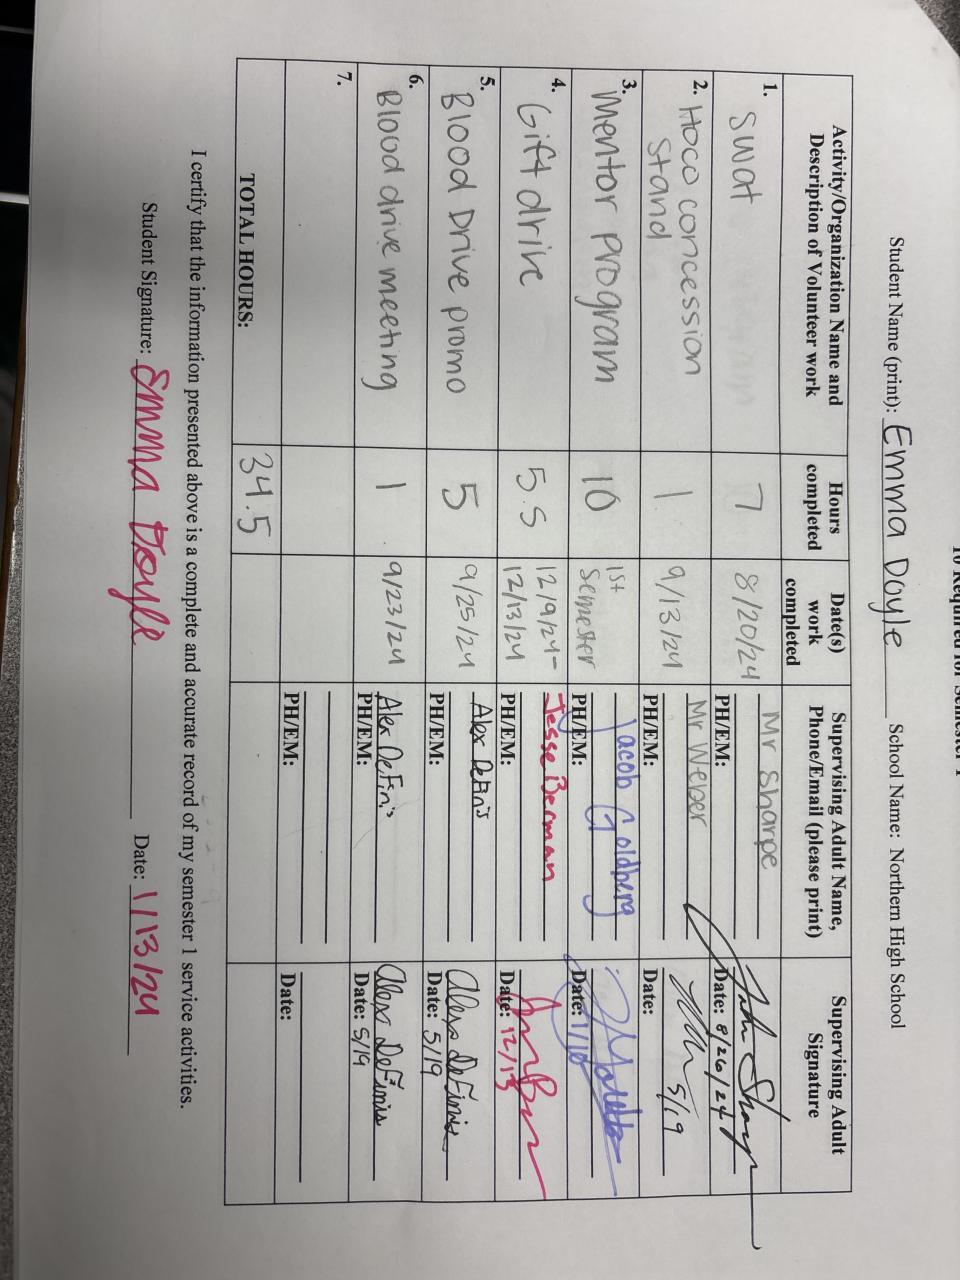 Student Name (print): Emma Doyle School Name: Northern High School
Activity/Organization Name and Description of Volunteer work
Hours completed
Date(s) work completed
Supervising Adult Name, Phone/Email (please print)
Supervising Adult Signature
1. Swat
7
8/20/24
Mr Sharpe
PH/EM:
Date: 8/26/24
2. Hoco concession
Stand
1
9/13/24
Mr Weber
PH/EM:
5/19
Date:
3. Mentor program
10
1st
Semester
Jacob Goldberg
PH/EM:
Date: 1/10
4. Gift drive
5.5
12/9/24-
12/13/24
Jesse Berman
PH/EM:
Date: 12/13
5. Blood Drive promo
5
9/25/24
Alex Defin's
PH/EM:
Alexa DeFinis
Date: 5/19
6. Blood drive meeting
1
9/23/24
Alex DeFin's
PH/EM:
Alexa DeFinis
Date: 5/19
7.
PH/EM:
Date:
TOTAL HOURS:
34.5
I certify that the information presented above is a complete and accurate record of my semester 1 service activities.
Student Signature: Emma Doyle Date: 1/13/24